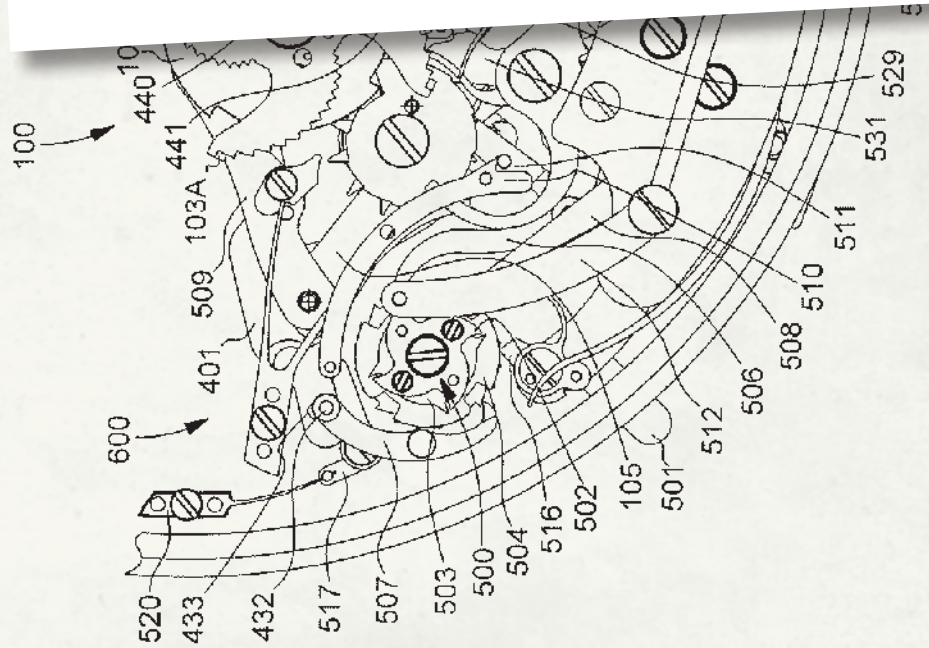 100
600
10
440
441
103A
509
401
520
433
432
517
507
503
500
504
516
502
105
501
512
506
508
510
511
531
529